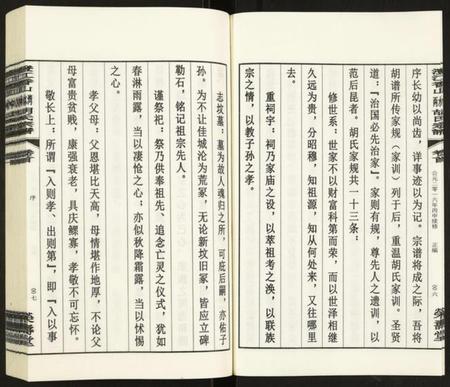 序长幼以尚齿，详事迹以为记。宗谱将成之际，吾将
胡谱所传家规（家训）列于后，重温胡氏家训。圣贤
道：『治国必先治家』。家则有规，尊先人之遗训，以
范后昆者。胡氏家规共一十三条：
修世系：世家不以财富科第而荣，而以世泽相继
久远为贵，分昭穆，知祖源，知从何处来，又往哪里
去。
重祠宇：祠乃家庙之设，以萃祖考之涣，以联族
宗之情，以教子孙之孝。
公元二零一六年丙申续修
正编
卷六
荣寿堂
志坟墓：墓为故人魂归之所，可庇后嗣，亦佑子
孙。为不让佳城沦为荒冢，无论新坟旧冢，皆应立碑
勒石，铭记祖宗先人。
谨祭祀：祭乃供奉祖先、追念亡灵之仪式，犹如
春淋雨露，当以凄怆之心；亦似秋降霜露，当以怵惕
之心。
孝父母：父恩堪比天高，母情堪作地厚，不论父
母富贵贫贱，康强衰老，具庆鳏寡，孝敬不可忘怀。
敬长上：所谓『入则孝、出则第』，即『入以事
序
卷七